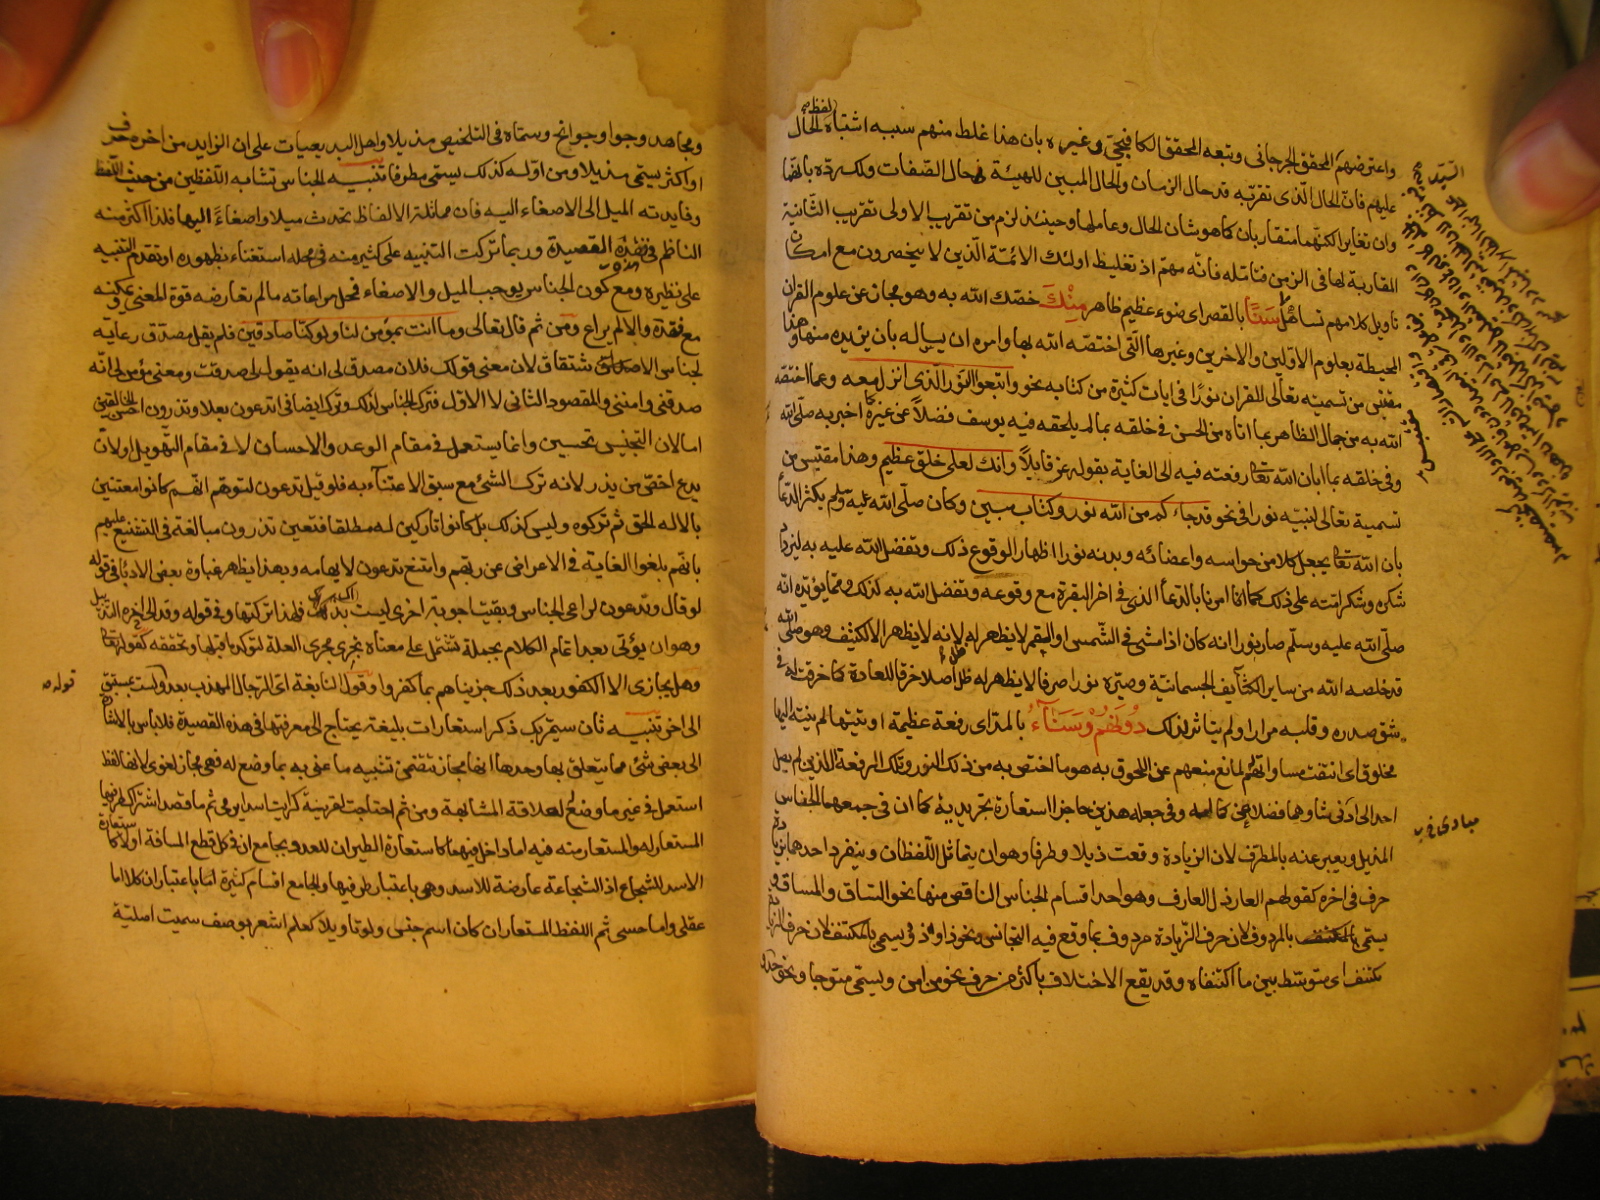 لفظ
واعترضهم المحقق الجرجاني وتبعه المحقق الكافيجي وغيره بان هذا غلط منهم سببه اشتباه الحال
عليهم فان الحال الذي تقربه قد حال الزمان والحال المبين للهيئة في حال الصفات ولك رده بانهما
وان تغايرا لكنهما متقاربان كما هو شان الحال وعاملها وحينئذ لزم من تقريب الاولى تقريب الثانية
المقاربة لها في الزمن فتامله فانه مهم اذ تغليط اولئك الائمة الذين لا يحصرون مع امكان
تاويل كلامهم تساهل سَنًا بالقصر اى ضوء عظيم ظاهر مِنْكَ خصك الله به وهو مجاز عن علوم القران
المحيطة بعلوم الاولين والاخرين وغيرها التي اختصه الله بها وامره ان يساله بان يزيده منها وهذا
مقتبس من تسميته تعالى للقران نورًا في ايات كثيرة من كتابه نحو واتبعوا النور الذي انزل معه وعما اختصه
الله به من جمال الظاهر بما اتاه من الحسن في خلقه بما لم يلحقه فيه يوسف فضلا عن غيره كما اخبر به صلى الله
وفي خلقه بما ابان الله تعالى رفعته فيه الى الغاية بقوله عز قايلاً وانك لعلى خلق عظيم وهذا مقتبس من
تسمية تعالى لنبيه نورا في نحو قد جاءكم من الله نور وكتاب مبين وكان صلى الله عليه وسلم يكثر الدعاء
بان الله تعالى يجعل كلا من حواسه واعضائه وبدنه نورا اظهارا لوقوع ذلك وتفضل الله عليه به ليزداد
شكره وشكر امته على ذلك كما انا امرنا بالدعاء الذي في اخر البقرة مع وقوعه وتفضل الله به كذلك ومما يؤيده انه
صلى الله عليه وسلم صار نورا انه كان اذا مشى في الشمس او القمر لا يظهر له ظل لانه لا يظهر الا لكثيف وهو صلى الله
قد خلصه الله من ساير الكثائف الجسمانية وصيره نورا صرفا لا يظهر له ظل اصلا خرقا للعادة كما خرقت له في
شق صدره وقلبه مرارا ولم يتاثر لذلك دُونَهُمْ وَسَنَآءُ بالمد اى رفعة عظيمة اوتيتها لم ينته اليها
مخلوق اى انتفت مساواتهم لمانع منعهم عن اللحوق به هو ما اختص به من ذلك النور وتلك الرفعة اللذين لم يصل
احد الى ادنى شاوهما فضلا عن كماله وفي جعله هذين حاجزا استعارة تجريدية كما ان في جمعهما الجناس
المذيل ويعبر عنه بالمطرف لان الزيادة وقعت ذيلا وطرفا وهو ان يتماثل اللفظان وينفرد احدهما بزيادة
حرف في اخره كقولهم العار ذل العارف وهو احد اقسام الجناس الناقص منها نحو الساق والمساق و
يسمى بالمردوف لان حرف الزيادة مردوف بما وقع فيه التجانس ونحو ذا وذو ويسمى بالمكتنف لان حرف الزيادة
مكتنف اى متوسط بين ما اكتنفاه وقد يقع الاختلاف باكثر من حرف نحو من امن ويسمى متوجا ونحو
مقتبس
مبادى
ومجاهد وجوا وجوانح وسماه في التلخيص مذيلا واهل البديعيات على ان الزايد من اخره حرف
او اكثر يسمى مذيلا ومن اوله كذلك يسمى مطرفا تنبيه الجناس تشابه اللفظين من حيث اللفظ
وفايدته الميل الى الاصغاء اليه فان مماثلة الالفاظ تحدث ميلا واصغاءً اليها فلذا اكثر منه
الناظم في هذه القصيدة وربما تركت التنبيه على كثير منه في محله استغناء بظهوره او بتقدم التنبيه
على نظيره ومع كون الجناس يوجب الميل والاصغاء فمحل مراعاته ما لم تعارضه قوة المعنى وتمكينه
مع فقده والا لم يراع ومن ثم قال تعالى وما انت بمؤمن لنا ولو كنا صادقين فلم يقل مصدق رعاية
لجناس الاشتقاق لان معنى قولك فلان مصدق لي انه يقول لي صدقت ومعنى مؤمن لي انه
صدقني وامنني والمقصود الثاني لا الاول فترك الجناس لذلك وترك ايضا في اتدعون بعلا وتذرون احسن الخالقين
اما لان التجنيس تحسين وانما يستعمل في مقام الوعد والاحسان لا في مقام التهويل او لان
يدع اخص من يذر لانه ترك الشئ مع سبق الاعتناء به فلو قيل تدعون لتوهم انهم كانوا معتنين
بالاله الحق ثم تركوه وليس كذلك بل كانوا تاركين له مطلقا فتعين تذرون مبالغة في التشنيع عليهم
بانهم بلغوا الغاية في الاعراض عن ربهم وامتنع تدعون لايهامه وبهذا يظهر غباوة بعض الادبا في قوله
لو قال وتدعون لراعى الجناس وبقيت اجوبة اخرى ليست بذاك فلهذا تركتها وفي قوله وقد الى اخره التذييل
وهو ان يؤتى بعد اتمام الكلام بجملة تشتمل على معناه تجري مجرى العلة لتوكد ما قبلها وتحققه كقوله تعالى
وهل يجازى الا الكفور بعد ذلك جزيناهم بما كفروا وقول النابغة اى الرجال المهذب بعد ولست بمستبق
قوله
الى اخره تنبيه ثان سيمر بك ذكر استعارات بليغة يحتاج الى معرفتها في هذه القصيدة فلا باس بالاشارة
الى بعض شئ مما يتعلق بها وحدها انها مجاز تتضمن تشبيه ما عنى به بما وضع له فهي مجاز لغوى لانها لفظ
استعمل في غير ما وضع له لعلاقة المشابهة ومن ثم احتاجت لقرينة كرايت اسدا يرمي ثم ما قصد اشتراك طرفيها
المستعار له والمستعار منه فيه اما داخل فيهما كاستعارة الطيران للعدو بجامع ان في كل قطع المسافة اولا كاستعارة
الاسد للشجاع اذ الشجاعة عارضة للاسد وهي باعتبار طرفيها والجامع اقسام كثيرة اما باعتبار ان كلا اما
عقلي واما حسي ثم اللفظ المستعار ان كان اسم جنس ولو تاويلا كعلم اشعر بوصف سميت اصلية